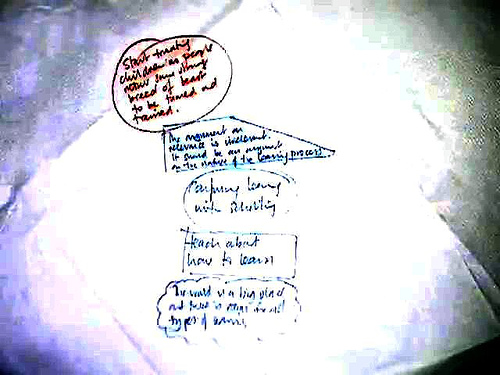 Start treating
children as people
not some strong
breed of beast
to be tamed and
trained.
The argument on
relevance is irrelevant.
It should be an argument
on the nature of the learning process
Confusing learning
with schooling
Teach about
how to learn
The world is a big place
and there is room for all
types of learning